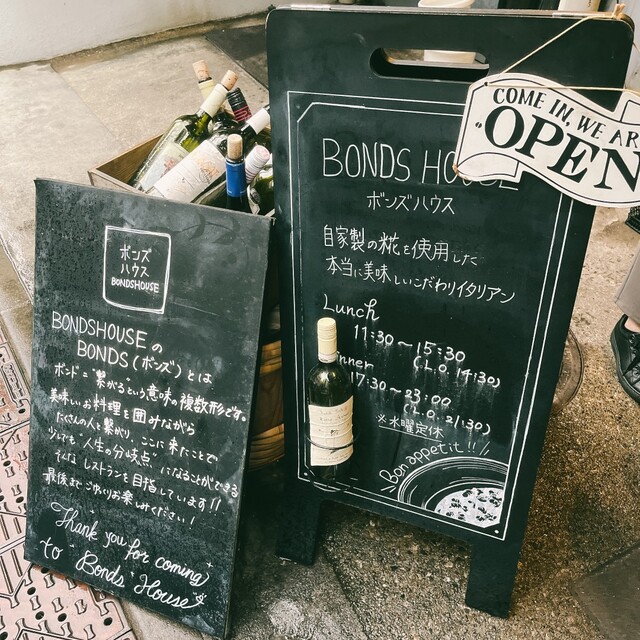 ボンズ
ハウス
BONDSHOUSE
BONDSHOUSE の
BONDS (ボンズ) とは
ボンド = "繋がる"という意味の複数形です。
美味しいお料理を囲みながら
たくさんの人と繋がり、ここに来たことで
少しでも"人生の分岐点"になることができる
そんなレストランを目指しています!!
最後までごゆっくりお楽しみください!
Thank you for coming
to "Bonds" House
COME IN, WE AR
OPEN
BONDS HOUSE
ボンズハウス
自家製の糀を使用した
本当に美味しいこだわりイタリアン
Lunch
11:30～15:30
(L.O. 14:30)
inner
17:30～23:00
(L.O. 21:30)
※水曜定休
Bon appetit!!